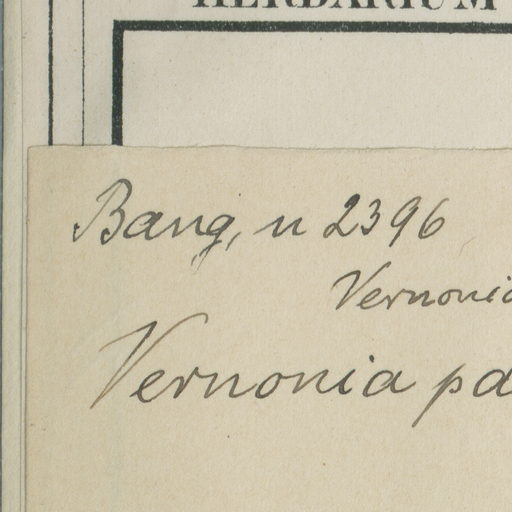 HERBARIUM
Bang, n 2396
Vernonia
Vernonia pa